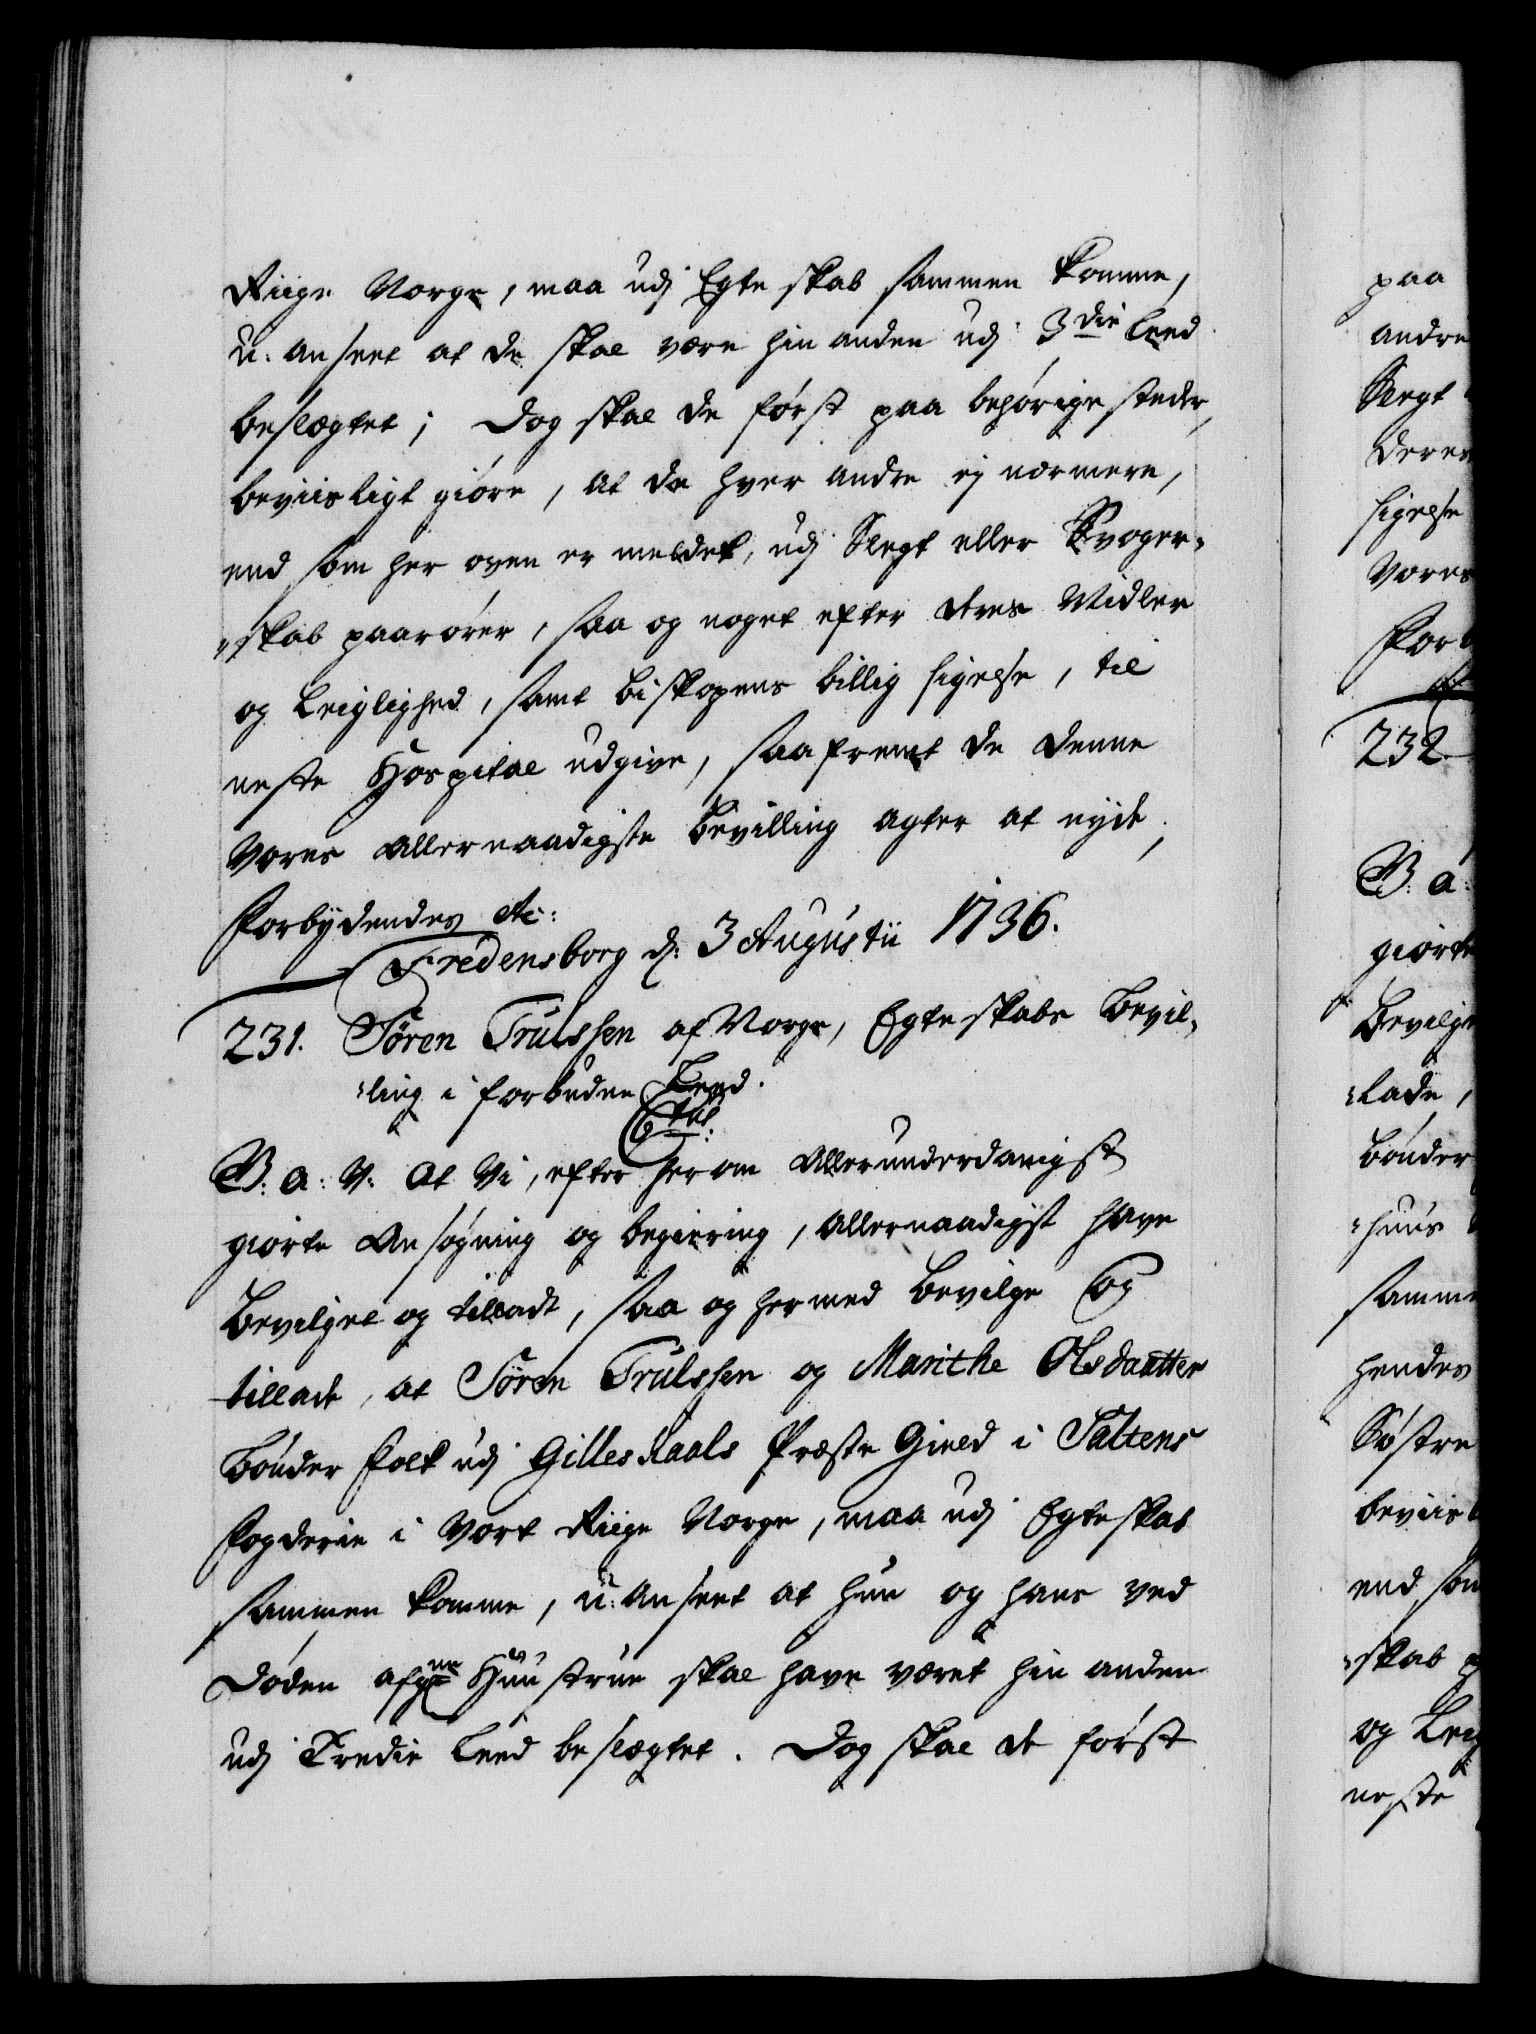 Riige Norge, maa udj Egteskab sammen komme,
u-anseet at de skal være hin anden udj 3die Leed
beslægtet; Dog skal de først paa behørige steder,
beviisligt giøre, at de hver andre ej nærmere,
end som her oven er meldet, udj Slegt eller Svoger-
skab paarører, saa og noget efter deres Midler
og Leiglighed, samt Biskopens billig sigelse, til
neste Hospital udgive, saafremt de denne
Vores allernaadigste Bevilling agter at nyde,
Forbydendes etc:
Fredensborg d: 3 Augustii 1736.
231. Søren Trulssen af Norge, Egteskabs Bevil-
ling i forbudne Leed.
V: a: V: at Vi, efter herom allerunderdanigst
giorte Ansøgning og begiering, allernaadigst have
Bevilget og tilladt, saa og hermed Bevilge og
tillade, at Søren Trulssen og Marithe Olsdaatter
Bønder Folk udj Gillesdaals Præste Gield i Saltens
Fogderie i Vort Riige Norge, maa udj Egteskab
sammen komme, u-anseet at hun og hans ved
Døden afgne Huustrue skal have været hin anden
udj Tredie Leed beslægtet. Dog skal de først
paa
andre
Slegt
deres
sigelse
Vores
For
232
V: a:
giorte
Bevilge
lade,
Bønder
huus
samme
hendes
Søstre
beviis
end som
skab
og Leig
neste